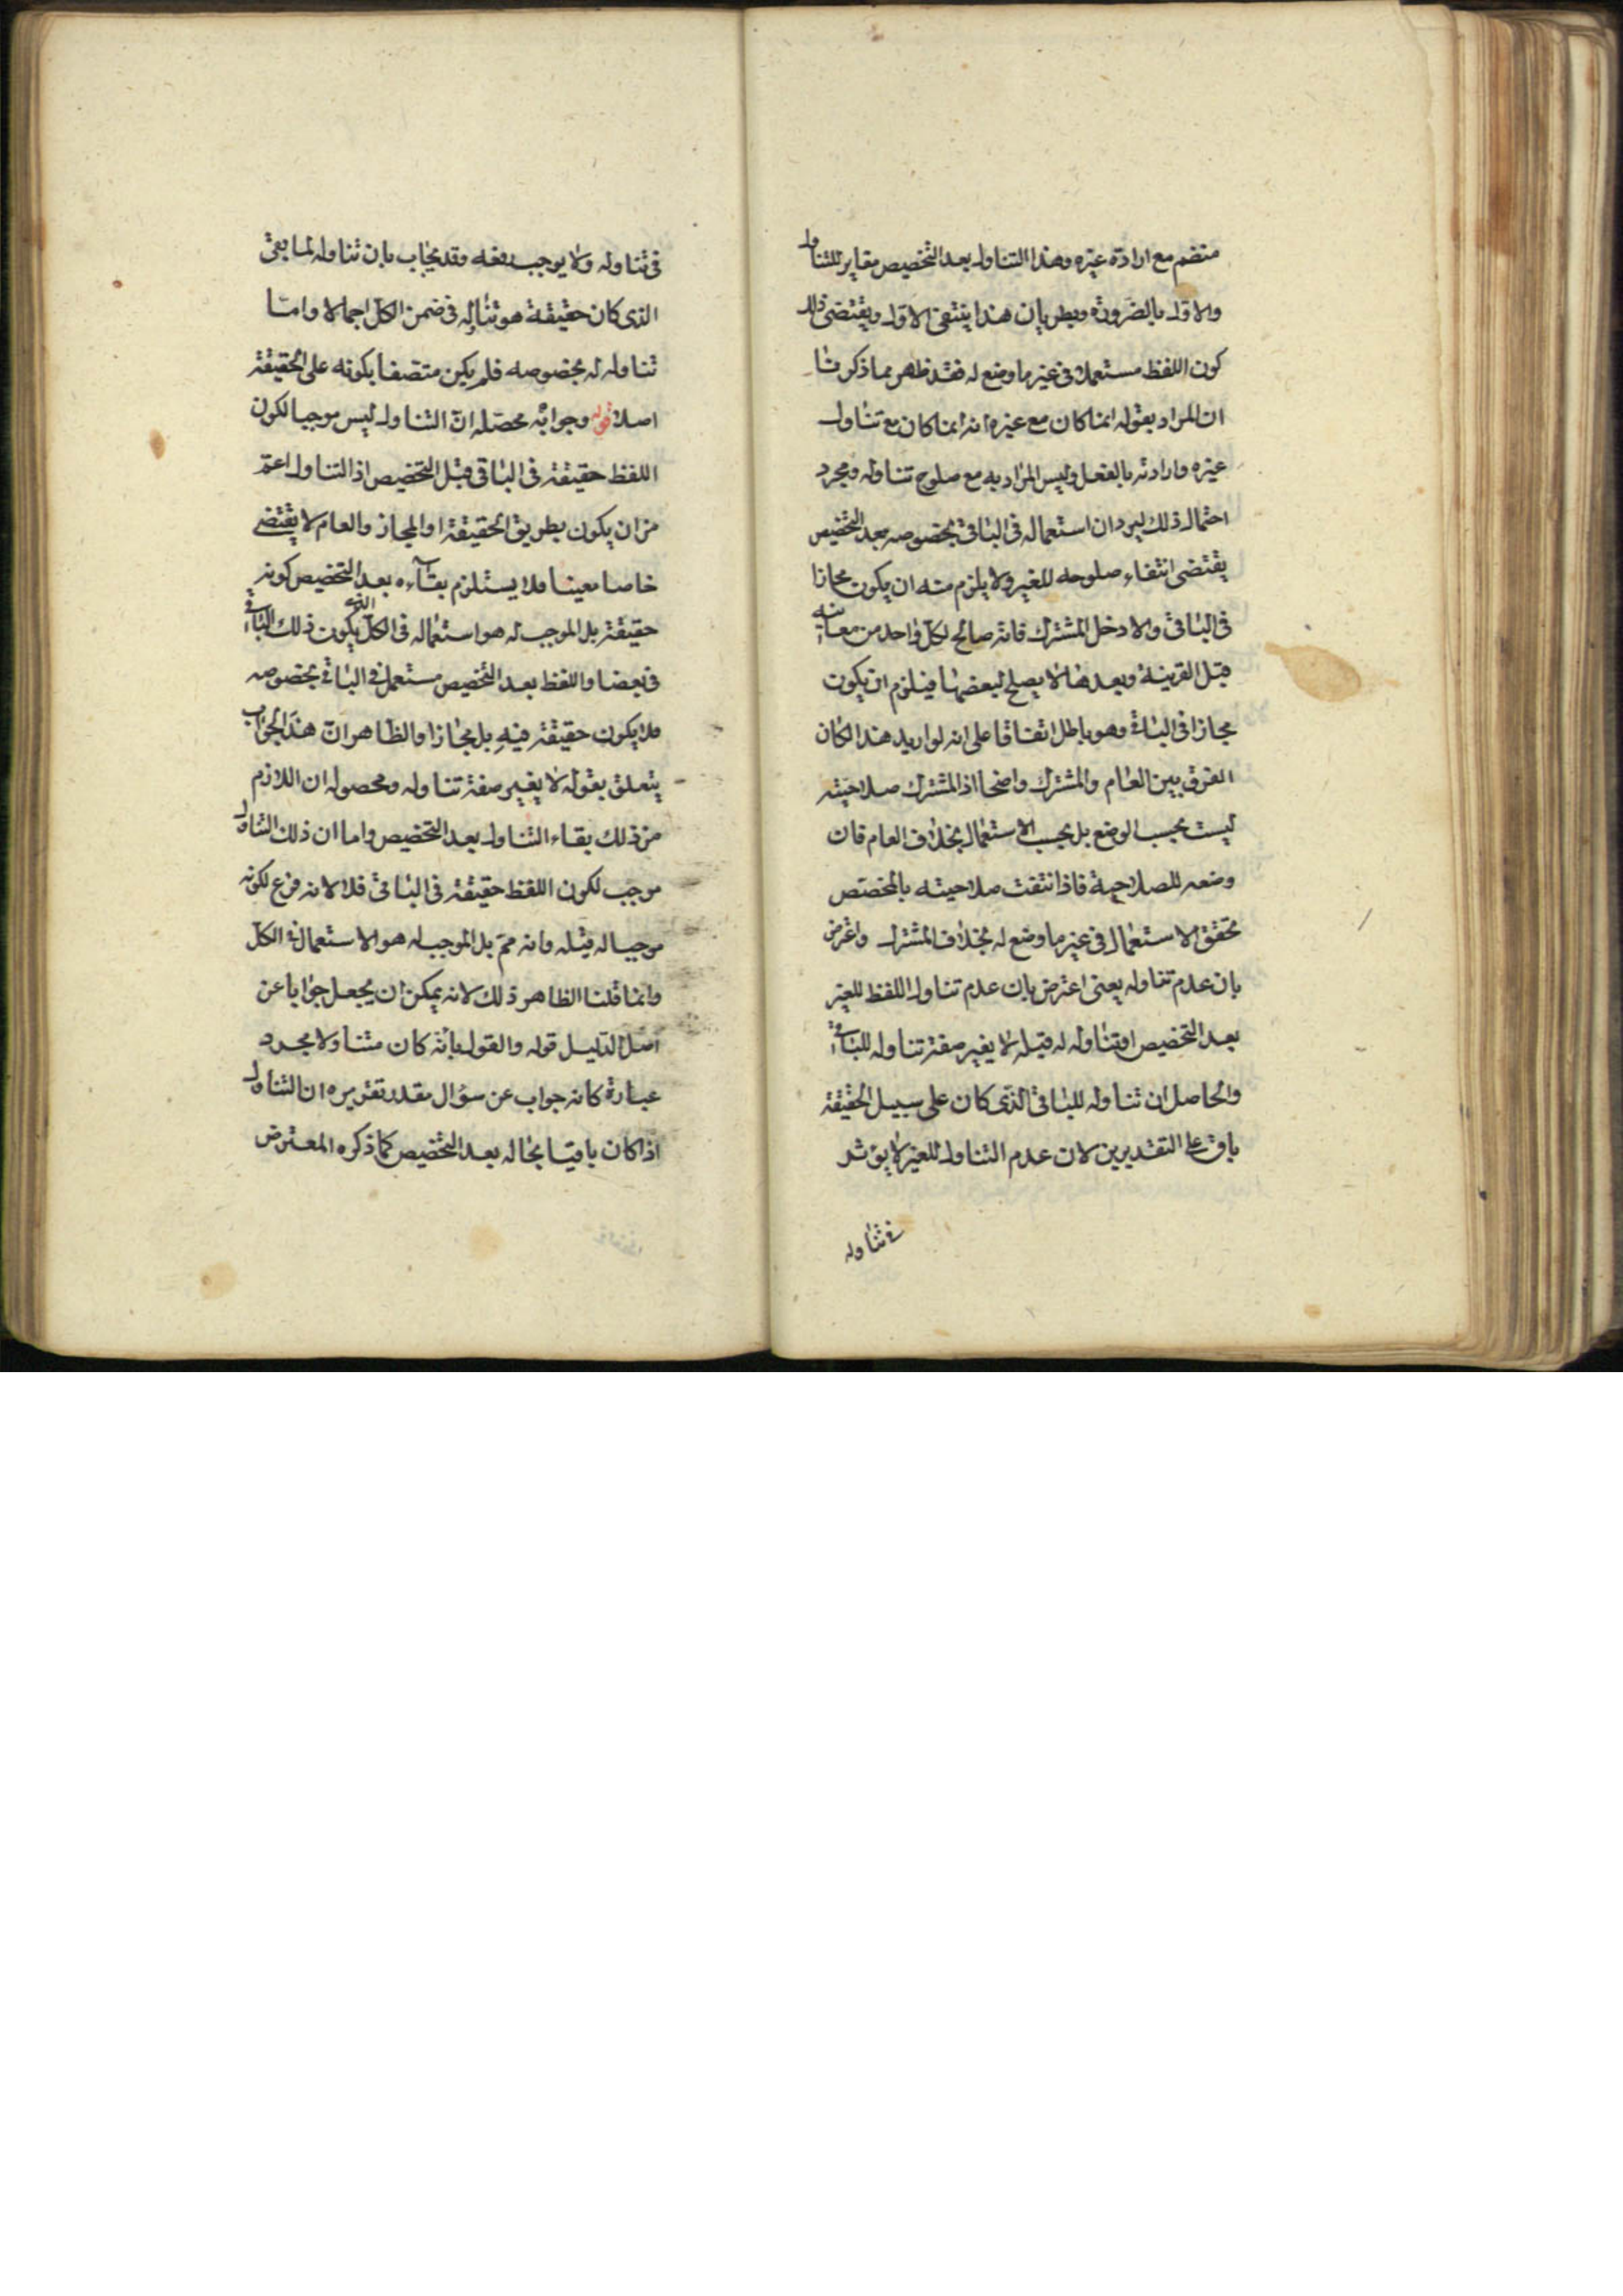 منضم مع ارادة غيره وهذا التناول بعد التخصيص مغاير للتناول
والاول بالضرورة وبطريان هذا ينتفى الاول ويقتضى ذلك
كون اللفظ مستعملا فى غير ما وضع له فقد ظهر مما ذكرنا
ان المراد بقوله انما كان مع غيره انه انما كان مع تناول
غيره وارادته بالفعل وليس المراد به مع صلوح تناوله ومجرد
احتماله ذلك ليرد ان استعماله فى الباقى بخصوصه بعد التخصيص
يقتضى انتفاء صلوحه للغير ولا يلزم منه ان يكون مجازا
فى الباقى والا دخل المشترك فانه صالح لكل واحد من معانيه
قبل القرينة وبعدها لا يصلح لبعضها فيلزم ان يكون
مجازا فى الباقى وهو باطل اتفاقا على انه لو اريد هذا لكان
الفرق بين العام والمشترك واضحا اذ المشترك صلاحيته
ليست بحسب الوضع بل بحسب الاستعمال بخلاف العام فان
وضعه للصلاحية فاذا انتفت صلاحيته بالمخصص
تحقق الاستعمال فى غير ما وضع له بخلاف المشترك واعترض
بان عدم تناوله يعنى اعترض بان عدم تناول اللفظ للغير
بعد التخصيص او تناوله له قبله لا يغير صفة تناوله للباقى
والحاصل ان تناوله للباقى الذى كان على سبيل الحقيقة
باق على التقديرين لان عدم التناول للغير لا يؤثر
فى تناوله
فى تناوله ولا يوجب رفعه وقد يجاب بان تناوله لما بقى
الذى كان حقيقة هو تناوله فى ضمن الكل اجمالا واما
تناوله له بخصوصه فلم يكن متصفا بكونه على الحقيقة
اصلا قوله وجوابه محصله ان التناول ليس موجبا لكون
اللفظ حقيقة فى الباقى قبل التخصيص اذ التناول اعم
من ان يكون بطريق الحقيقة او المجاز والعام لا يقتضى
خاصا معينا فلا يستلزم بقاءه بعد التخصيص كونه
حقيقة بل الموجب له هو استعماله فى الكل الذى يكون ذلك الباقى
فى بعضا واللفظ بعد التخصيص مستعمل فى الباقى بخصوصه
فلا يكون حقيقة فيه بل مجازا والظاهر ان هذا الجواب
يتعلق بقوله لا يغير صفة تناوله ومحصوله ان اللازم
من ذلك بقاء التناول بعد التخصيص واما ان ذلك التناول
موجب لكون اللفظ حقيقة فى الباقى فلا لانه فرع لكونه
موجبا له قبله وانه مم بل الموجب له هو الاستعمال فى الكل
وانما قلنا الظاهر ذلك لانه يمكن ان يجعل جوابا عن
اصل الدليل قوله والقول بانه كان متناولا مجرد
عبارة كانه جواب عن سؤال مقدر تقريره ان التناول
اذا كان باقيا بحاله بعد التخصيص كما ذكره المعترض